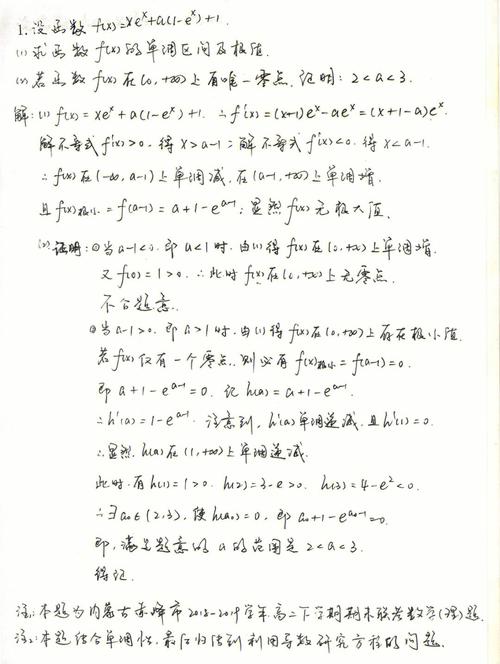 1.设函数 f(x)=xe^x+a(1-e^x)+1.
(1) 求函数 f(x)的单调区间及极值.
(2) 若函数 f(x)在(0,+∞)上有唯一零点,证明:2<a<3.
解:(1) f(x)=xe^x+a(1-e^x)+1. ∴f'(x)=(x+1)e^x-ae^x=(x+1-a)e^x.
解不等式f'(x)>0,得 x>a-1;解不等式f'(x)<0,得 x<a-1.
∴f(x)在(-∞,a-1)上单调减,在(a-1,+∞)上单调增.
且f(x)极小=f(a-1)=a+1-e^{a-1};显然f(x)无极大值.
(2) 证明:①当a-1<0,即a<1时,由(1)得f(x)在(0,+∞)上单调增.
又f(0)=1>0.∴此时f(x)在(0,+∞)上无零点.
不合题意.
②当a-1>0,即a>1时,由(1)得f(x)在(0,+∞)上存在极小值.
若f(x)仅有一个零点,则必有f(x)极小=f(a-1)=0.
即a+1-e^{a-1}=0.记h(a)=a+1-e^{a-1}.
∴h'(a)=1-e^{a-1}.注意到,h'(a)单调递减,且h'(1)=0.
∴显然,h(a)在(1,+∞)上单调递减.
此时,有h(1)=1>0. h(2)=3-e>0. h(3)=4-e^2<0.
∴∃a₀∈(2,3),使h(a₀)=0,即a₀+1-e^{a₀-1}=0.
即,满足题意的a的范围是2<a<3.
得证.
注1:本题为内蒙古赤峰市2018-2019学年高二下学期期末联考数学(理)题.
注2:本题结合单调性,最后归结到利用导数研究方程的问题.